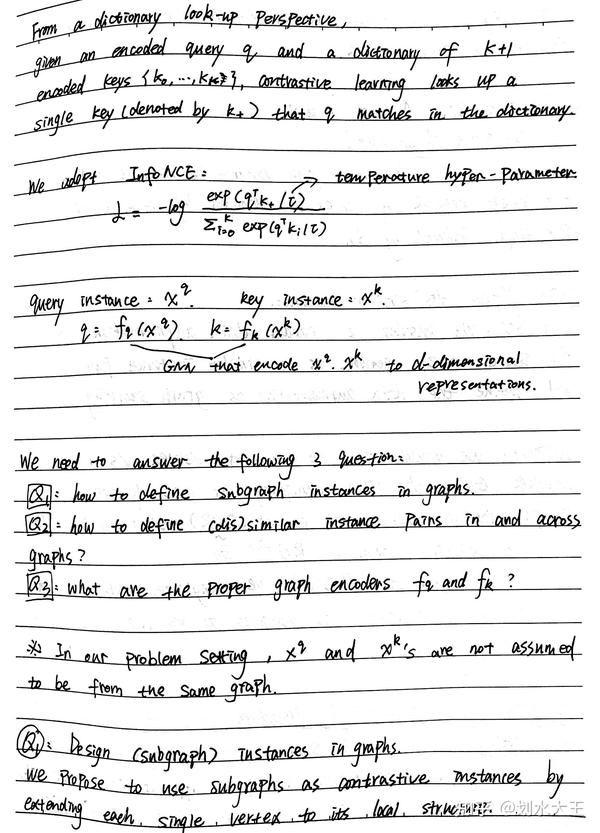 From a dictionary look-up perspective,
given an encoded query q and a dictionary of K+1
encoded keys {k₀, ..., k_K}, contrastive learning looks up a
single key (denoted by k₊) that q matches in the dictionary.
We adopt InfoNCE: temperature hyper-parameter
L = -log exp(qᵀk₊/τ) / Σᵢ₌₀ᴷ exp(qᵀkᵢ/τ)
query instance: x^q. key instance: x^k.
q = f_q(x^q). k = f_k(x^k)
GNN that encode x^q. x^k to d-dimensional
representations.
We need to answer the following 3 question:
Q1: how to define subgraph instances in graphs.
Q2: how to define (dis)similar instance pairs in and across
graphs?
Q3: what are the proper graph encoders f_q and f_k?
※ In our problem setting, x^q and x^k's are not assumed
to be from the same graph.
Q1: Design (subgraph) instances in graphs.
We propose to use subgraphs as contrastive instances by
extending each single vertex to its local structure.
知乎 @划水大王